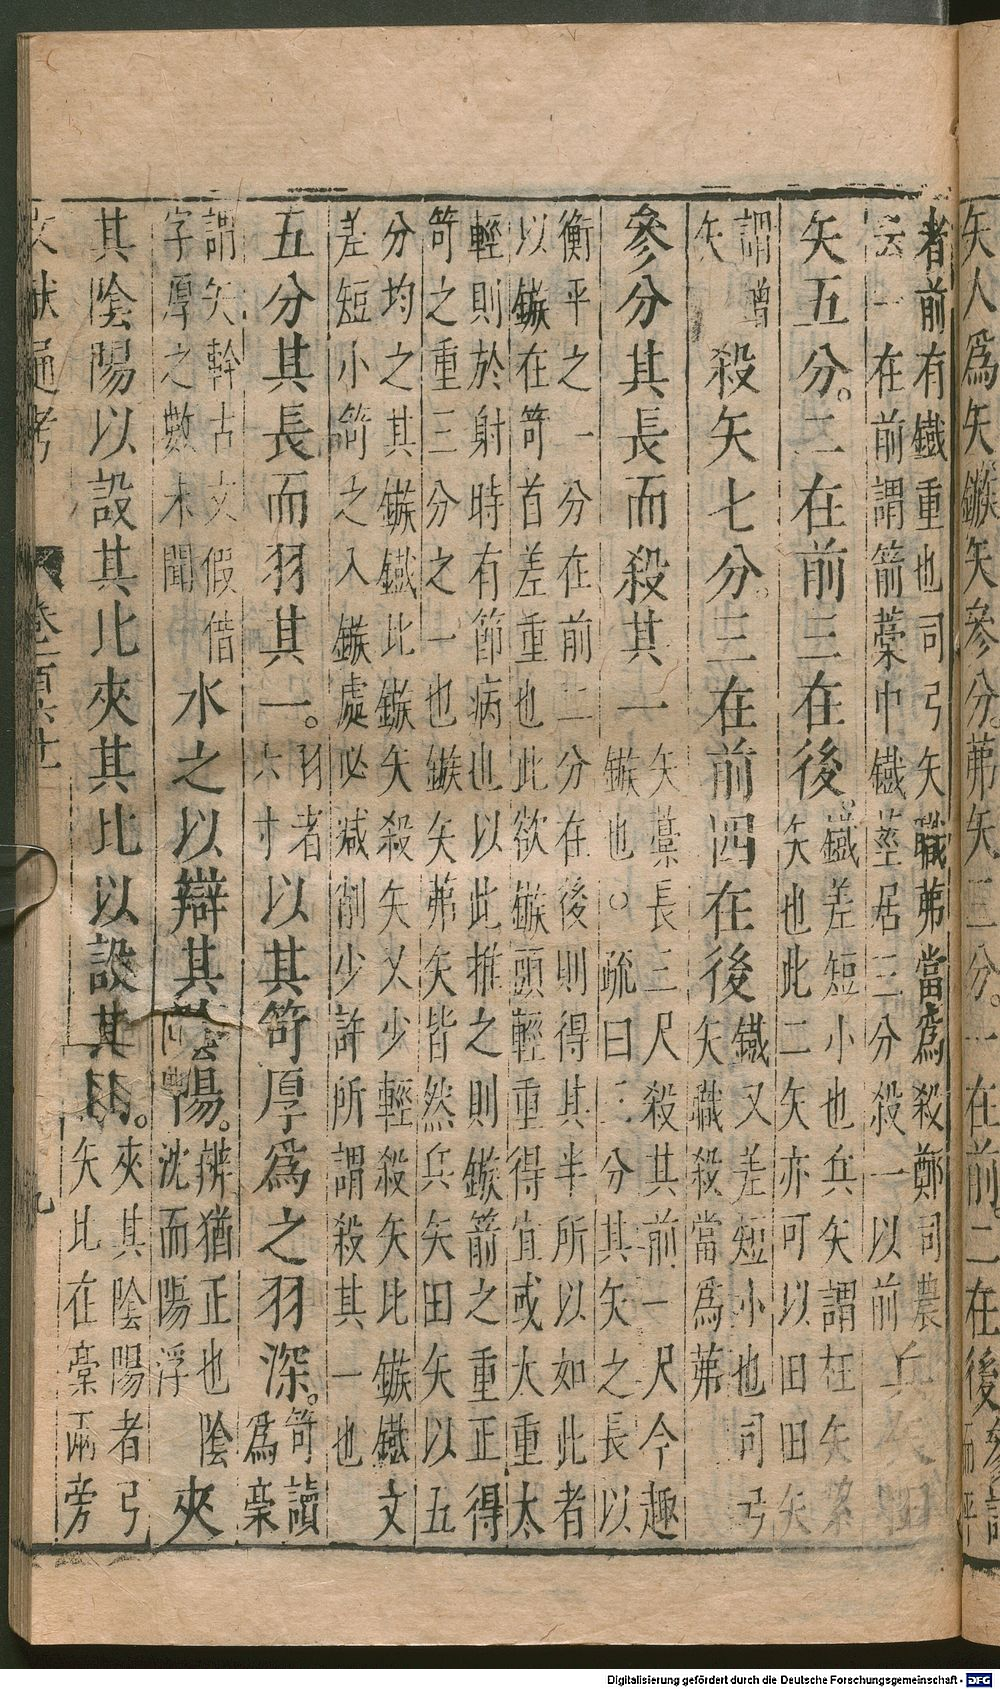 矢人爲矢鏃矢參分茀矢三分一在前二在後
者前有鐵重也司弓矢職茀當爲殺鄭司農
云一在前謂箭藁中鐵莖居三分殺一以前 兵矢田
矢五分二在前三在後 鐵差短小也兵矢謂枉矢絜
矢也此二矢亦可以田田矢
謂矰
矢 殺矢七分三在前四在後 鐵又差短小也司弓
矢職殺當爲茀
參分其長而殺其一 矢藁長三尺殺其前一尺今趣
鏃也○疏曰三分其矢之長以
衡平之一分在前二分在後則得其半所以如此者
以鏃在笴首差重也此欲鏃頭輕重得宜或太重太
輕則於射時有節病也以此推之則鏃箭之重正得
笴之重三分之一也鏃矢茀矢皆然兵矢田矢以五
分均之其鏃鐵比鏃矢殺矢又少輕殺矢比鏃鐵文
差短小笴之入鏃處必減削少許所謂殺其一也
五分其長而羽其一 羽者
六寸 以其笴厚爲之羽深 笴讀
爲稾
謂矢幹古文假借
字厚之數未聞 水之以辯其陰陽 辨猶正也陰
沈而陽浮 夾
其陰陽以設其比夾其比以設其羽 夾其陰陽者弓
矢比在稾兩旁
文獻通考 卷一百六十一 九
Digitalisierung gefördert durch die Deutsche Forschungsgemeinschaft - DFG